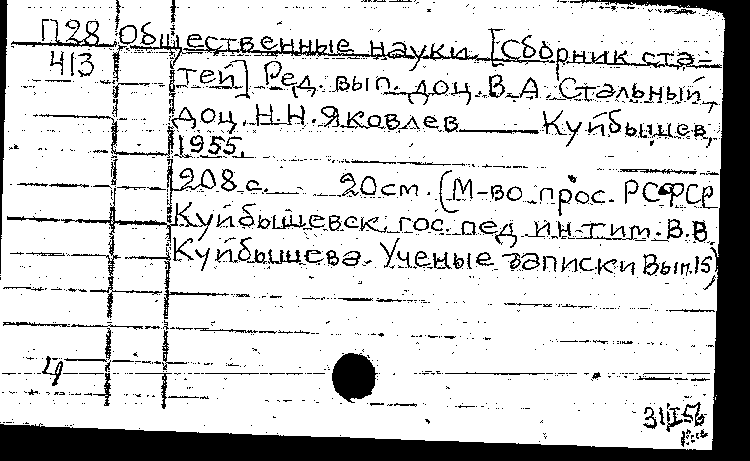 П28 Общественные науки. [Сборник ста-
413 тей] Ред. вып. доц. В.А. Стальный,
доц. Н.Н. Яковлев Куйбышев,
1955.
208 с. 20см. (М-во прос. РСФСР
Куйбышевск. гос. пед. ин-т им. В.В.
Куйбышева. Ученые записки Вып.15)
4
31/I 56